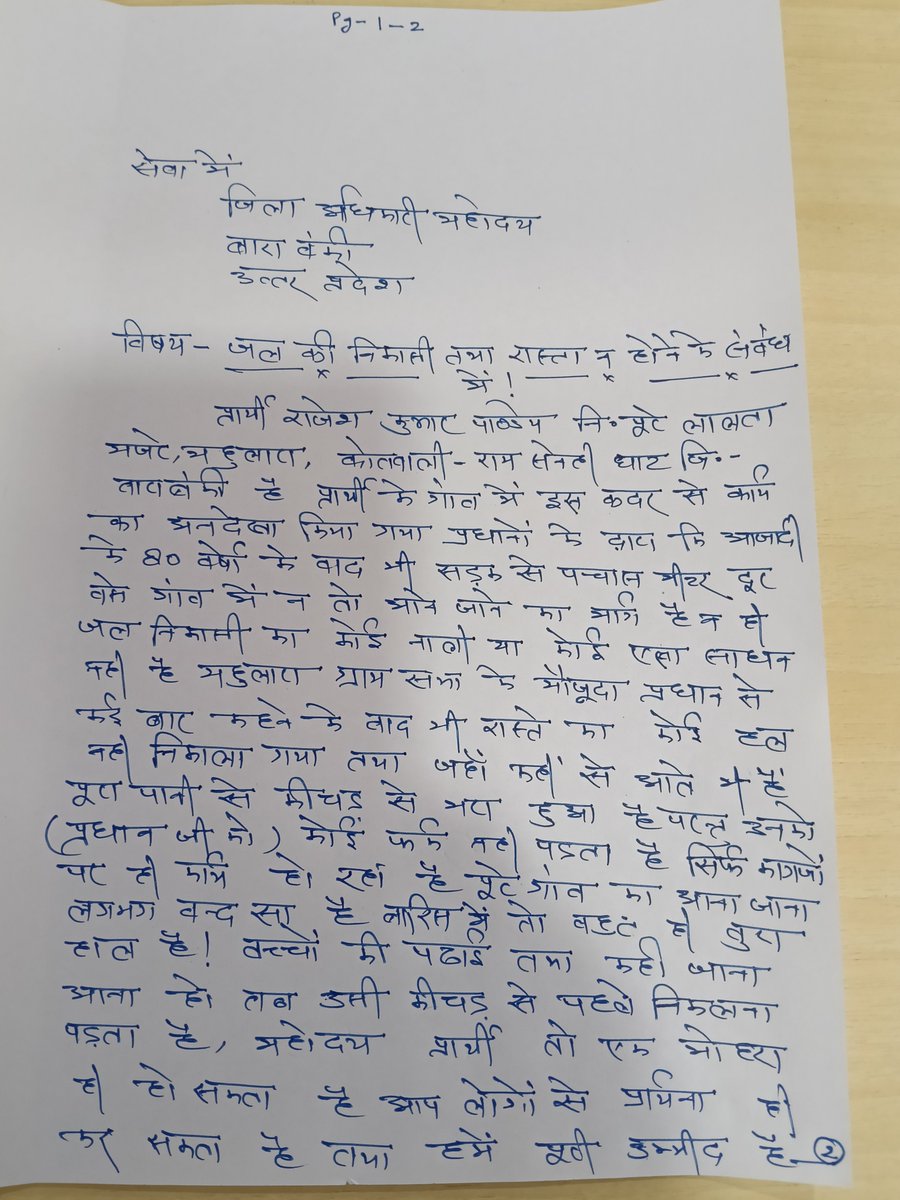 Pg-1-2
सेवा में
जिला अधिकारी महोदय
बारा बंकी
उत्तर प्रदेश
विषय - जल की निकासी तथा रास्ता न होने के संबंध
में!
प्रार्थी राजेश कुमार पाण्डेय नि॰ पूरे लालता
मजरे, महुलारा, कोतवाली - राम सनेही घाट जि॰-
बाराबंकी है प्रार्थी के गांव में इस कदर से कार्य
का अनदेखा किया गया प्रधानों के द्वारा कि आजादी
के 80 वर्षो के बाद भी सड़क से पच्चास मीटर दूर
बसे गांव में न तो आने जाने का मार्ग है न ही
जल निकासी का कोई नाली या कोई एसा साधन
नही है महुलारा ग्राम सभा के मौजूदा प्रधान से
कई बार कहने के बाद भी रास्ते का कोई हल
नही निकाला गया तथा जहाँ कहीं से आते भी हैं
पूरा पानी से कीचड़ से भरा हुआ है परन्तु इनको
(प्रधान जी को) कोई फर्क नही पड़ता है सिर्फ कागजों
पर ही कार्य हो रहा है पूरे गांव का आना जाना
लगभग बन्द सा है बारिस में तो बहुत ही बुरा
हाल है! बच्चों की पढाई तथा कही जाना
आना हो तब उसी कीचड़ से पहले निकलना
पड़ता है, महोदय प्रार्थी तो एक मोहरा
ही हो सकता है आप लोगों से प्रार्थना ही
कर सकता है तथा हमें पूरी उम्मीद है 2